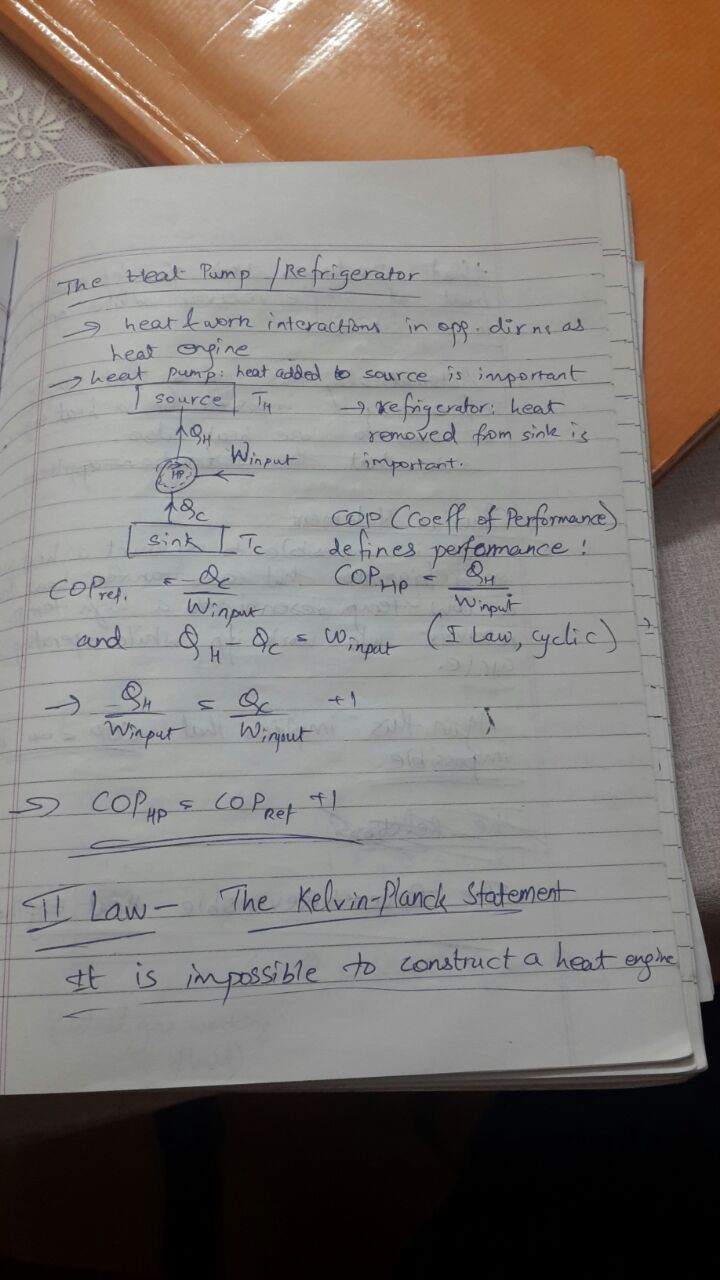 The Heat Pump / Refrigerator
→ heat & work interactions in opp. dirns as
heat engine
→ heat pump: heat added to source is important
source TH → refrigerator: heat
QH removed from sink is
HP Winput important.
QC
sink TC COP (Coeff of Performance)
defines performance:
COPref. = QC/Winput COPHP = QH/Winput
and QH - QC = Winput (I Law, cyclic)
→ QH/Winput = QC/Winput + 1
→ COPHP = COPRef + 1
II Law - The Kelvin-Planck Statement
It is impossible to construct a heat engine